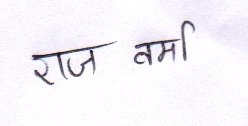 राज वर्मा